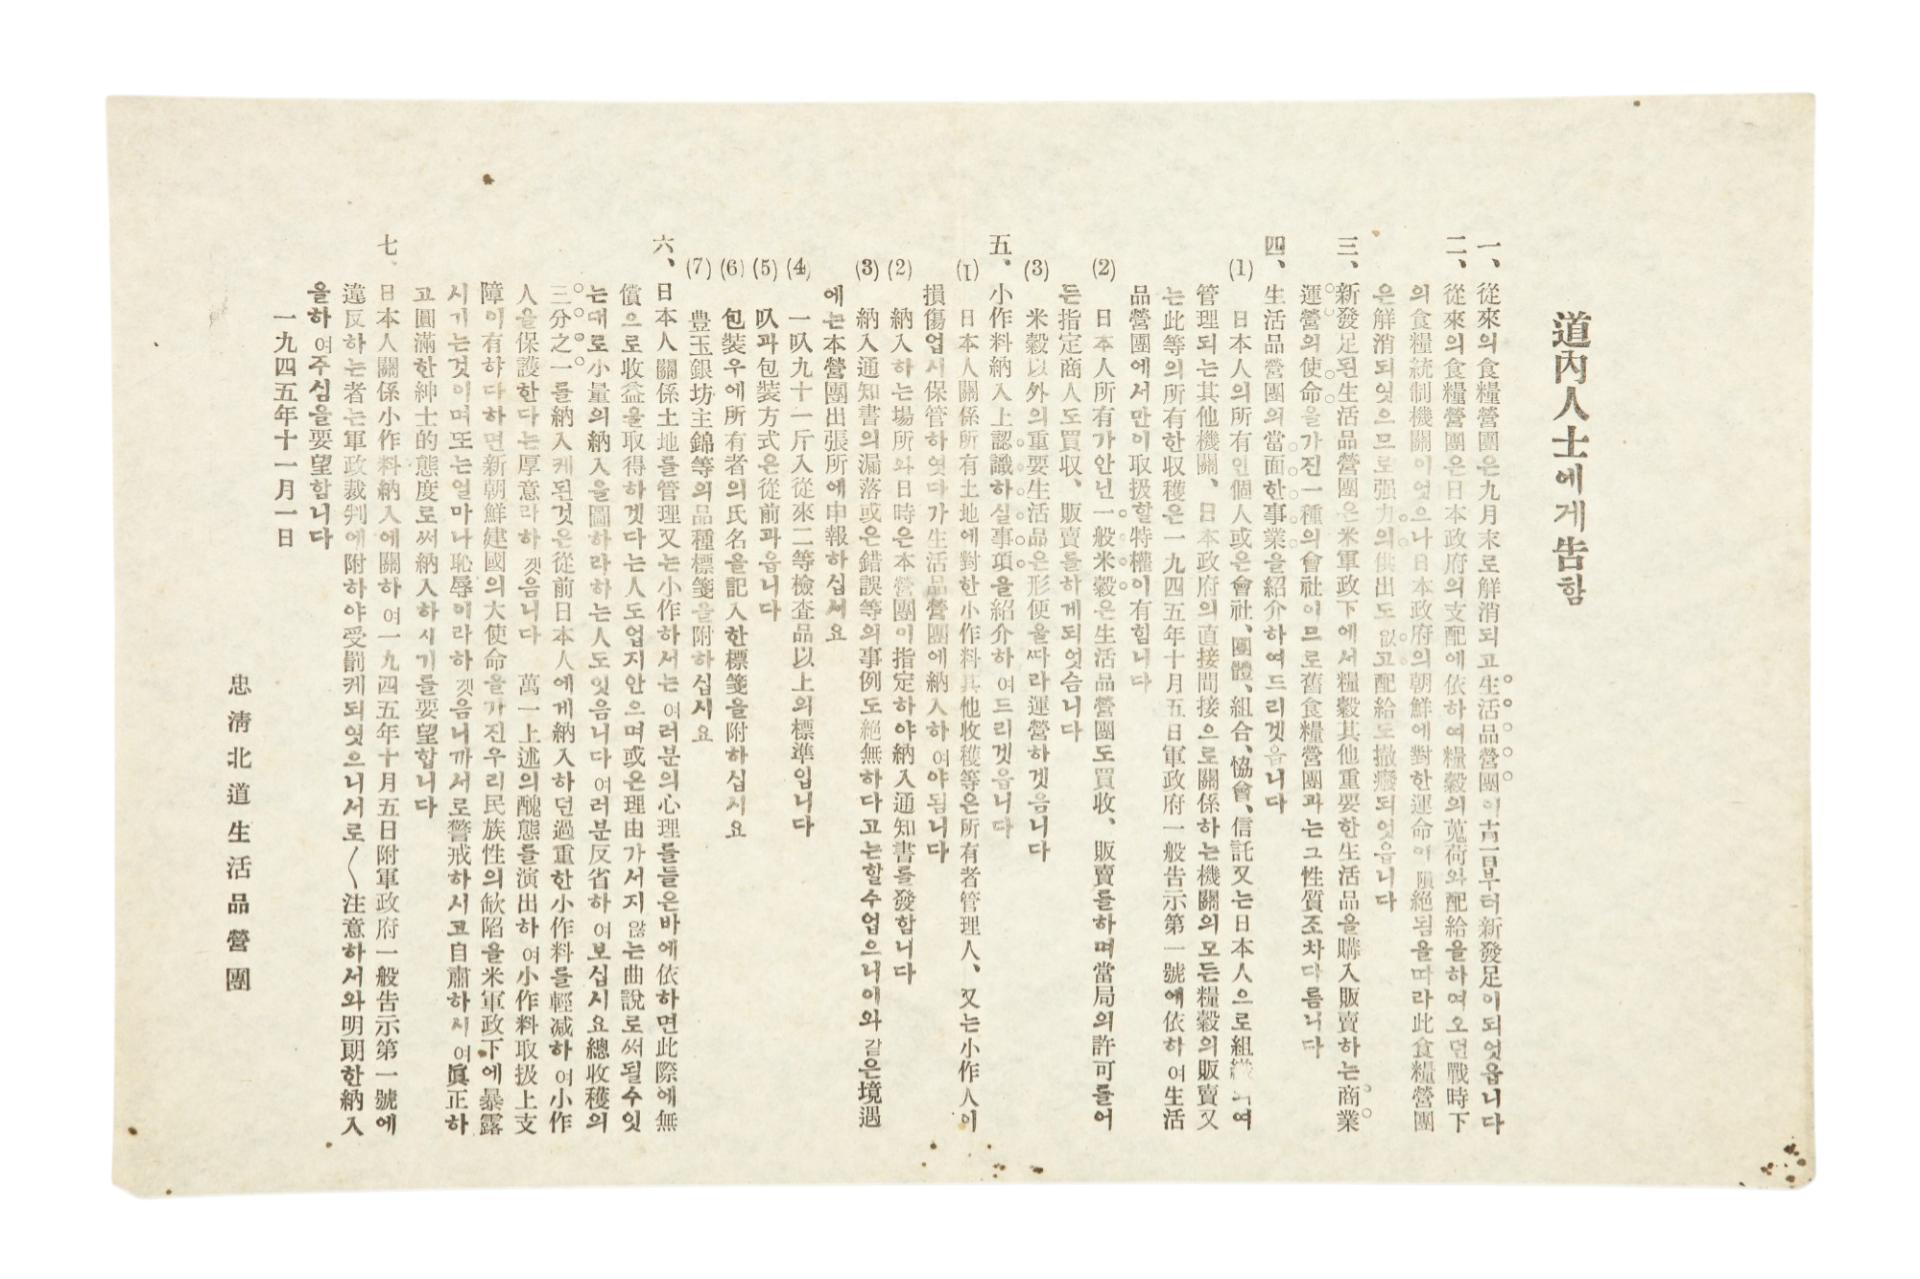 道內人士에게告함
一、從來의食糧營團은九月末로解消되고生活品營團이十一月一日부터新發足이되엇읍니다
二、從來의食糧營團은日本政府의支配에依하여糧穀의蒐荷와配給을하여오던戰時下
의食糧統制機關이엇으나日本政府의朝鮮에對한運命이隕絕됨을따라此食糧營團
은解消되엇으므로强力의供出도없고配給도撤廢되엇읍니다
三、新發足된生活品營團은米軍政下에서糧穀其他重要한生活品을購入販賣하는商業
運營의使命을가진一種의會社이므로舊食糧營團과는그性質조차다름니다
四、生活品營團의當面한事業을紹介하여드리겟읍니다
(1) 日本人의所有인個人或은會社、團體、組合、協會、信託又는日本人으로組織하여
管理되는其他機關、日本政府의直接間接으로關係하는機關의모든糧穀의販賣又
는此等의所有한収穫은一九四五年十月五日軍政府一般吿示第一號에依하여生活
品營團에서만이取扱할特權이有힘니다
(2) 日本人所有가안닌一般米穀은生活品營團도買收、販賣를하며當局의許可를어
든指定商人도買収、販賣를하게되엇슴니다
(3) 米穀以外의重要生活品은形便을따라運營하겟음니다
五、小作料納入上認識하실事項을紹介하여드리겟읍니다
(1) 日本人關係所有土地에對한小作料其他收穫等은所有者管理人、又는小作人이
損傷업시保管하엿다가生活品營團에納入하여야됨니다
(2) 納入하는場所와日時은本營團이指定하야納入通知書를發합니다
(3) 納入通知書의漏落或은錯誤等의事例도絕無하다고는할수업으니이와같은境遇
에는本營團出張所에申報하십서요
(4) 一叺九十一斤入從來二等檢査品以上의標準입니다
(5) 叺과包裝方式은從前과읍니다
(6) 包裝우에所有者의氏名을記入한標箋을附하십시요
(7) 豊玉銀坊主錦等의品種標箋을附하십시요
六、日本人關係土地를管理又는小作하서는여러분의心理를들은바에依하면此際에無
償으로收益을取得하겟다는人도업지안으며或은理由가서지않는曲說로써될수잇
는대로小量의納入을圖하라하는人도잇음니다여러분反省하여보십시요總收穫의
三分之一를納入케된것은從前日本人에게納入하던過重한小作料를輕減하여小作
人을保護한다는厚意라하겟음니다 萬一上述의醜態를演出하여小作料取扱上支
障이有하다하면新朝鮮建國의大使命을가진우리民族性의缺陷을米軍政下에暴露
시기는것이며또는얼마나恥辱이라하겟음니까서로警戒하시고自肅하시여眞正하
고圓滿한紳士的態度로써納入하시기를要望합니다
七、日本人關係小作料納入에關하여一九四五年十月五日附軍政府一般吿示第一號에
違反하는者는軍政裁判에附하야受罰케되엿으니서로〱注意하서와明朗한納入
을하여주심을要望함니다
一九四五年十一月一日
忠淸北道生活品營團